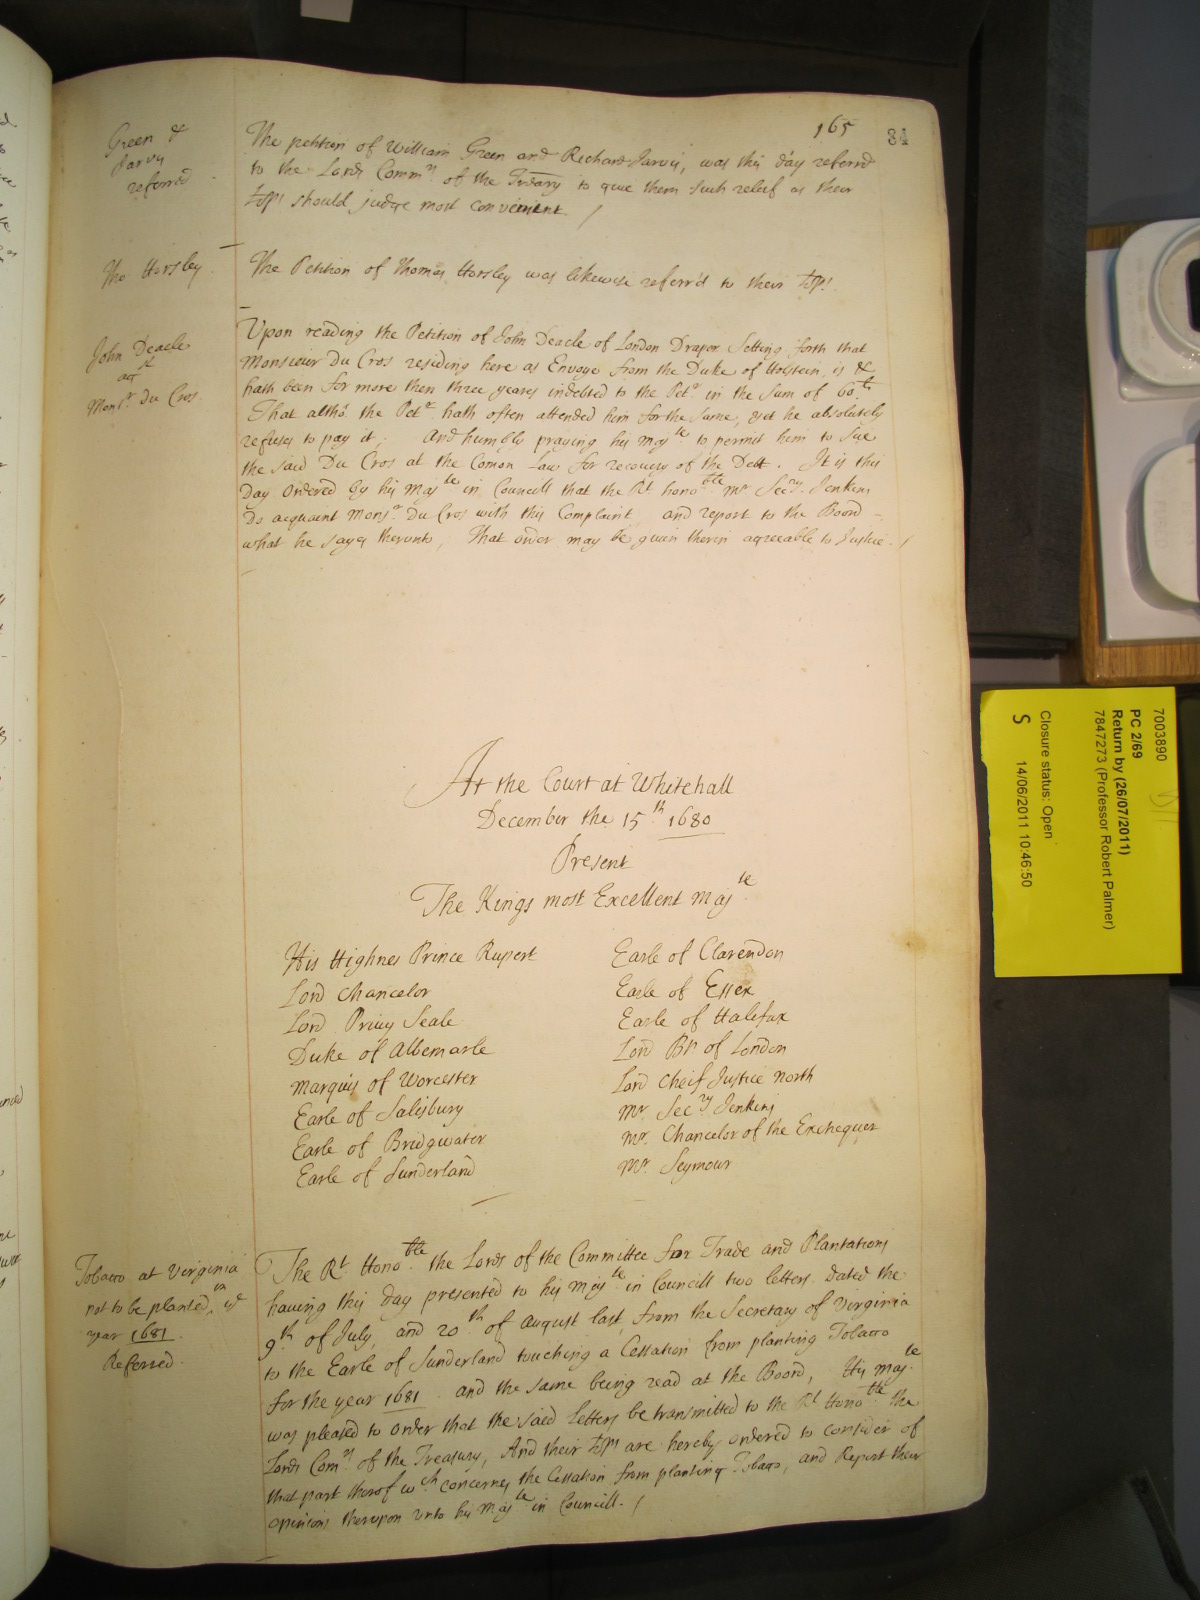 165
84
Green &
Jarvy
referred
The petition of William Green and Richard Jarvy, was this day referred
to the Lords Comm.rs of the Treãry to give them such releif as their
Lõps should judge most convenient. /
Tho Horsley
The Petition of Thomas Horsley was likewise referr'd to their Lõps.
John Deacle
agt
Monsr Du Cros
Upon reading the Petition of John Deacle of London Draper Setting forth that
Monsieur Du Cros residing here as Envoye from the Duke of Holstein, is &
hath been for more then three yeares indebted to the Petr in the sum of 60 li.
That altho the Petr hath often attended him for the same, yet he absolutely
refuses to pay it; And humbly praying his Majte to permit him to Sue
the said Du Cros at the Comon Law for recovery of the Debt. It is this
Day Ordered By his Majte in Councill that the Rt honoble Mr Secry Jenkins
Do acquaint Monsr Du Cros with this Complaint and report to the Board
what he sayes therunto, That order may be given therin agreeable to Justice. /
At the Court at Whitehall
December the 15th 1680
Present
The Kings most Excellent Majte
His Highnes Prince Rupert
Lord Chancelor
Lord Privy Seale
Duke of Albemarle
Marquis of Worcester
Earle of Salisbury
Earle of Bridgwater
Earle of Sunderland
Earle of Clarendon
Earle of Essex
Earle of Halifax
Lord Bp. of London
Lord Cheif Justice North
Mr. Secry Jenkins
Mr. Chancelor of the Exchequer
Mr. Seymour
Tobacco at Virginia
not to be planted, in ye
year 1681.
Referred.
The Rt. Honoble the Lords of the Committee for Trade and Plantations
having this day presented to his Majte in Councill two letters dated the
9th of July, and 20th of August last, from the Secretary of Virginia
to the Earle of Sunderland touching a Cessation from planting Tobacco
for the year 1681 and the same being read at the Board, His Majte
was pleased to order that the said Letters be transmitted to the Rt Honoble the
Lords Comrs of the Treasury, And their Lõps are hereby ordered to consider of
that part therof wch concernes the Cessation from planting Tobacco, and Report their
opinions therupon unto his Majte in Councill. /
7003890
PC 2/69
Return by (26/07/2011)
7847273 (Professor Robert Palmer)
Closure status: Open
S 14/06/2011 10:46:50